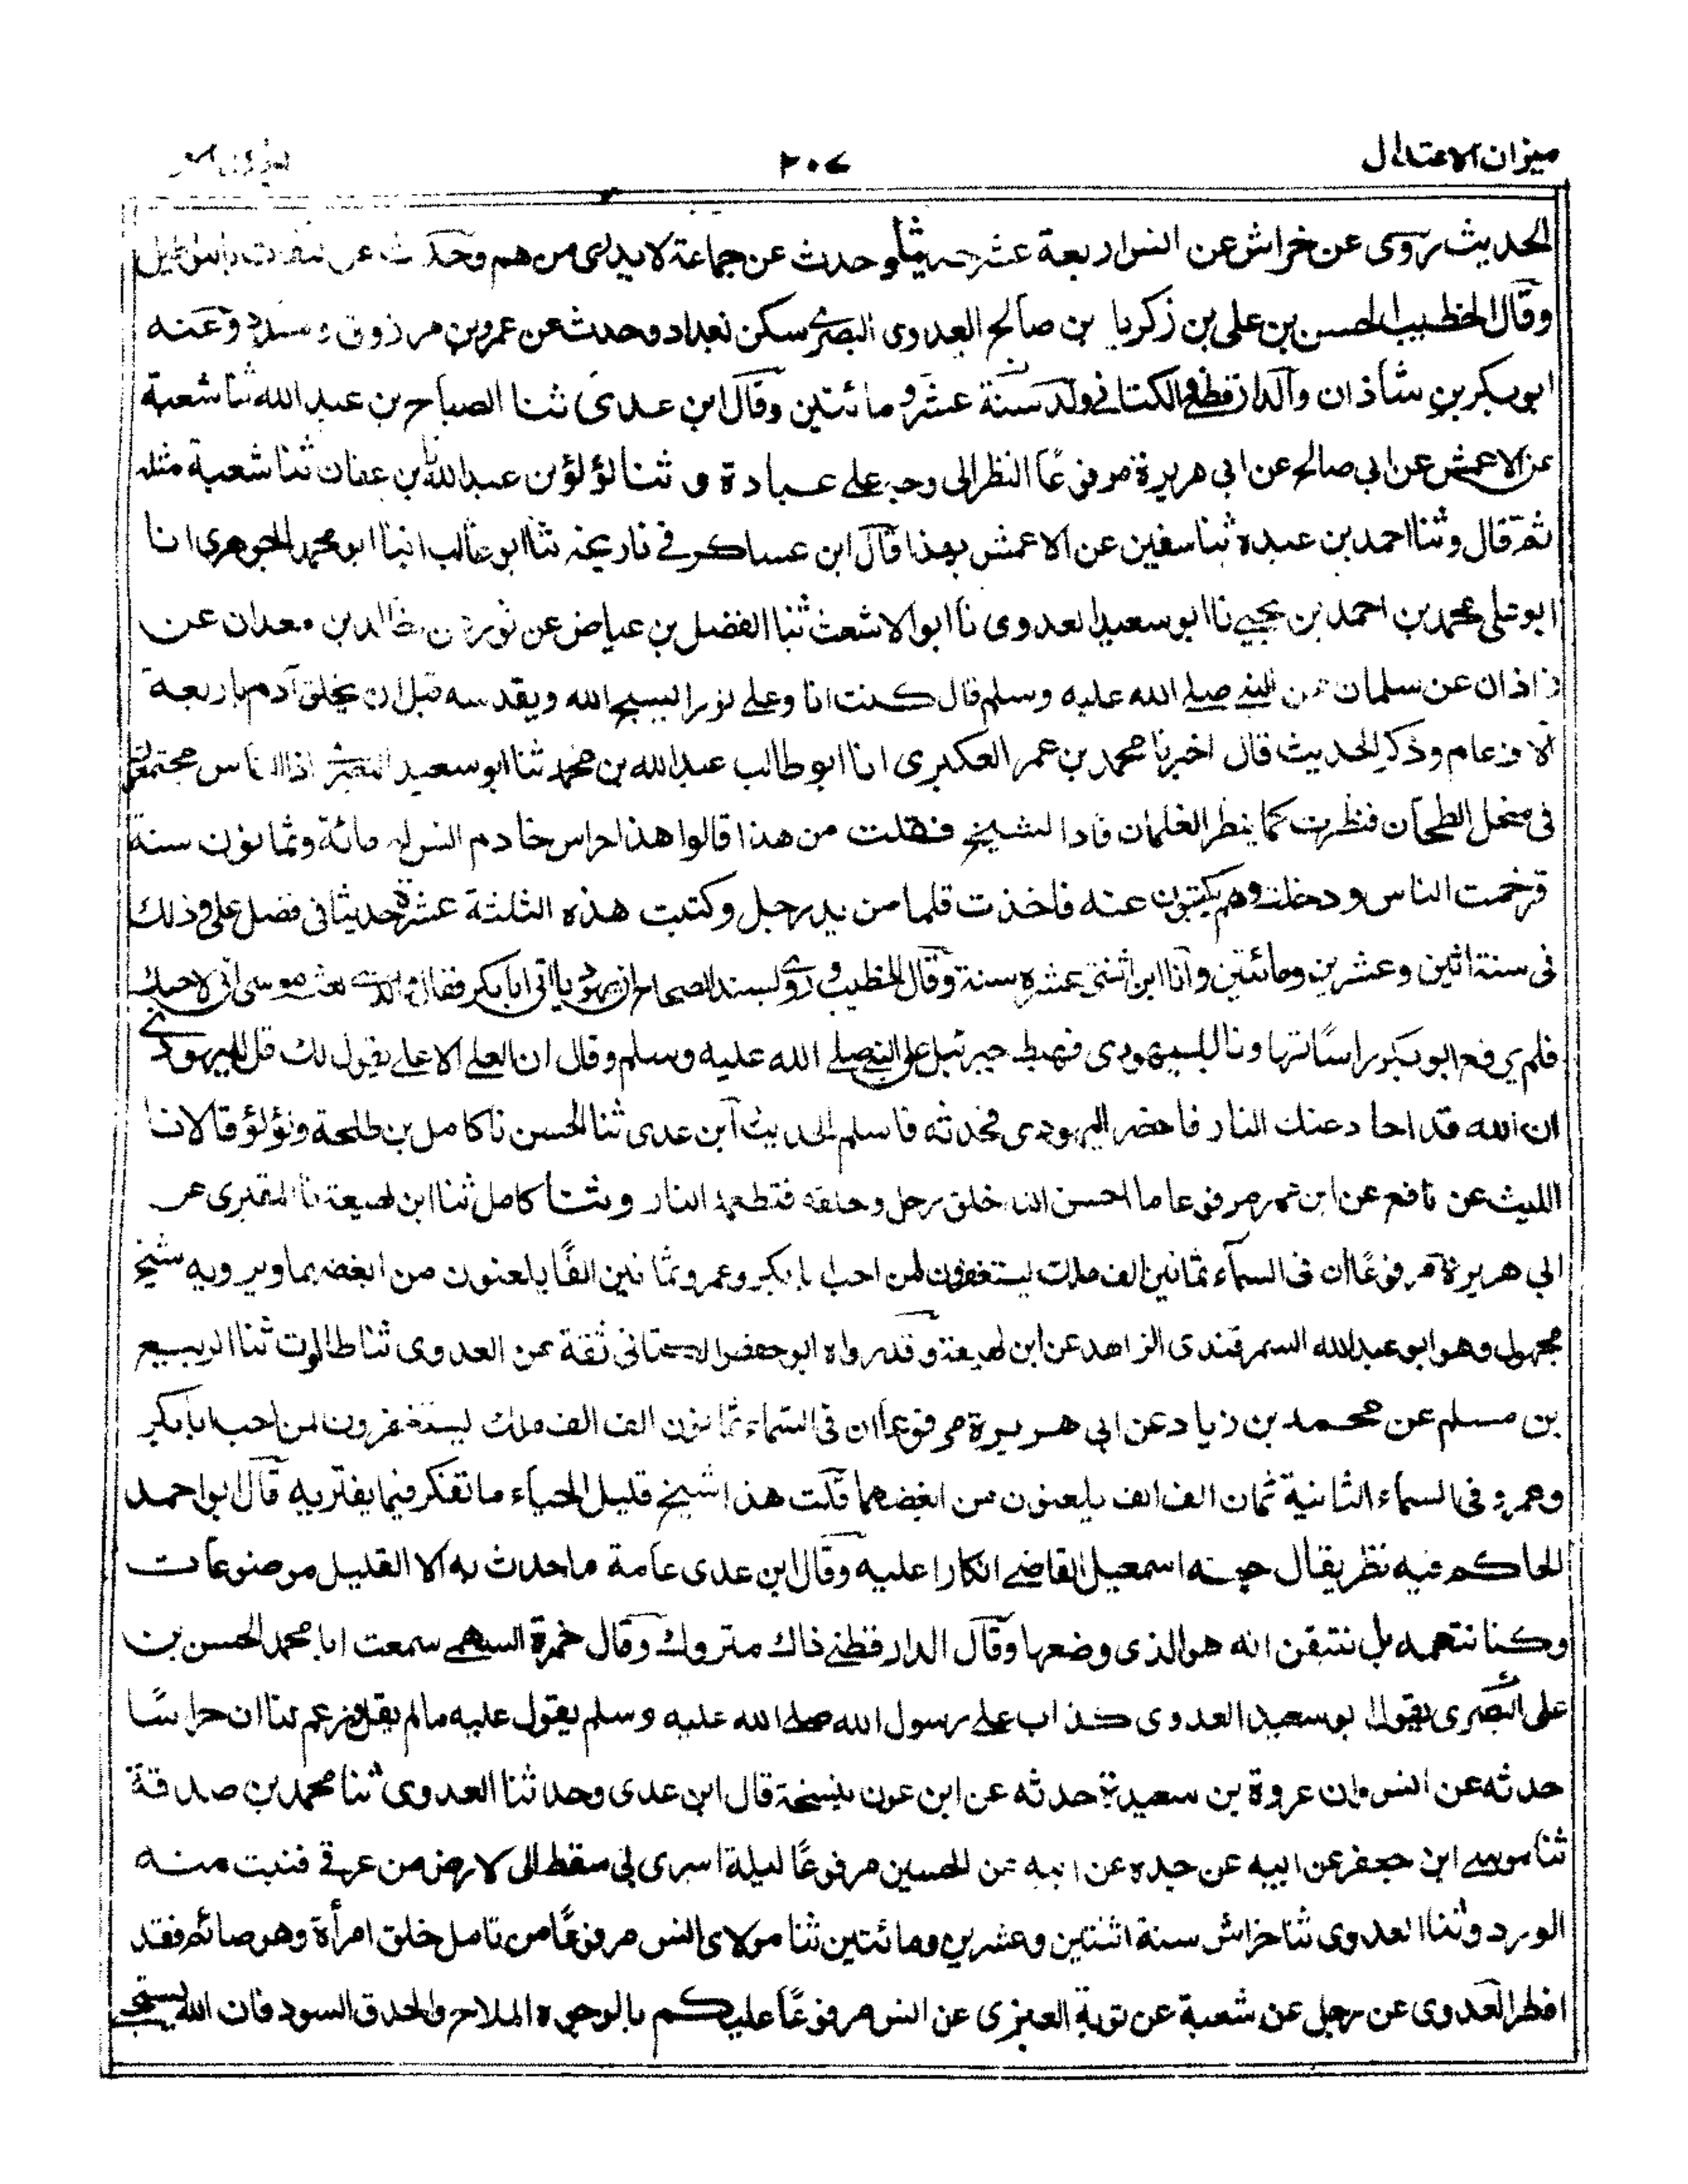 ميزان الاعتدال
٢٠٧
الحديث روى عن خراش عن انس اربعة عشر حديثا وحدث عن جماعة لا يدرى من هم وحدث عن الثقات بالبواطيل
وقال الخطيب الحسن بن على بن زكريا بن صالح العدوى البصرى سكن بغداد وحدث عن عمرو بن مرزوق ومسدد وعنه
ابو بكر بن شاذان والدارقطنى والكتانى ولد سنة عشر ومائتين وقال ابن عدى ثنا الصباح بن عبد الله ثنا شعبة
عن الاعمش عن ابى صالح عن ابى هريرة مرفوعًا النظر الى وجه على عبادة و ثنا لؤلؤ بن عبد الله ثنا بن عفان ثنا شعبة مثله
ثم قال وثنا احمد بن عبده ثنا سفين عن الاعمش بهذا قال ابن عساكر فى تاريخه ثنا ابو غالب انبا ابو محمد الجوهرى انا
ابو على محمد بن احمد بن يحيى نا ابو سعيد العدوى نا ابو الاشعث ثنا الفضل بن عياض عن ثور بن خالد بن معدان عن
زاذان عن سلمان عن النبى صلى الله عليه وسلم قال كنت انا وعلى نورا يسبح الله ويقدسه قبل ان يخلق آدم باربعة
آلاف عام وذكر الحديث قال اخبرنا محمد بن عمر العكبرى انا ابو طالب عبد الله بن محمد ثنا ابو سعيد اذا الناس مجتمعون
فى منحل الطحان فنظرت كما ينظر الغلمان فاذا لشيخ فقلت من هذا قالوا هذا خراش خادم انس له مائة وثمانون سنة
فزحمت الناس ودخلت وهم يكتبون عنه فاخذت قلما من يد رجل وكتبت هذه الثلثة عشرة حديثا فى فضل على وذلك
فى سنة اثنين وعشرين ومائتين وانا ابن اثنتى عشره سنة وقال الخطيب وروى بسند الصحاح ان يهوديا اتى ابا بكر فقال والذى بعث موسى انى لاحبك
فلم يرفع ابو بكر راسًا تهاونا لليهودى فهبط جبرئيل على النبى صلى الله عليه وسلم وقال ان العلى الاعلى يقول لك قل لليهودى
ان الله قد احاد عنك النار فاحضر اليهودى فحدثه فاسلم الحديث ابن عدى ثنا الحسن نا كامل بن طلحة ولؤلؤ قالا نا
الليث عن نافع عن ابن عمر مرفوعا ما احسن الله خلق رجل وخلقه فتطعمه النار وثنا كامل ثنا ابن لهيعة نا المقبرى عن
ابى هريرة مرفوعًا ان فى السمآء ثمانين الف ملك يستغفرون لمن احب ابا بكر وعمر وثمانين الفًا يلعنون من ابغضهما ويرويه شيخ
مجهول وهو ابو عبد الله السمرقندى الزاهد عن ابن لهيعة وقد رواه ابو حفص الكتانى ثقة عن العدوى ثنا طالوت ثنا الربيع
بن مسلم عن محمد بن زياد عن ابى هريرة مرفوعا ان فى السماء ثمانون الف الف ملك يستغفرون لمن احب ابا بكر
وعمر و فى السماء الثانية ثمان الف الف يلعنون من ابغضهما قلت هذا شيخ قليل الحياء ما تفكر فيما يفتريه قال ابو احمد
الحاكم فيه نظر يقال اسمعيل القاضى انكارا عليه وقال ابن عدى عامة ما حدث به الا القليل موضوعات
وكنا نتهمه بل نتيقن انه هو الذى وضعها وقال الدارقطنى ذاك متروك وقال حمزة السهمى سمعت ابا محمد الحسن بن
على البصرى يقول ابو سعيد العدوى كذاب على رسول الله صلى الله عليه وسلم يقول عليه مالم يقل وزعم لنا ان خراشًا
حدثه عن انس وان عروة بن سعيد حدثه عن ابن عون بنسخة قال ابن عدى وحدثنا العدوى ثنا محمد بن صدقة
ثنا موسى ابن جعفر عن ابيه عن جده عن ابيه عن الحسين مرفوعًا ليلة اسرى بى سقط الى الارض من عرقى فنبت منه
الورد وثنا العدوى ثنا خراش سنة اثنتين وعشرين ومائتين ثنا مولاى انس مرفوعًا من تامل خلق امرأة وهو صائم فقد
افطر العدوى عن رجل عن شعبة عن توبة العنبرى عن انس مرفوعًا عليكم بالوجوه الملاح والحدق السود فان الله يستحى